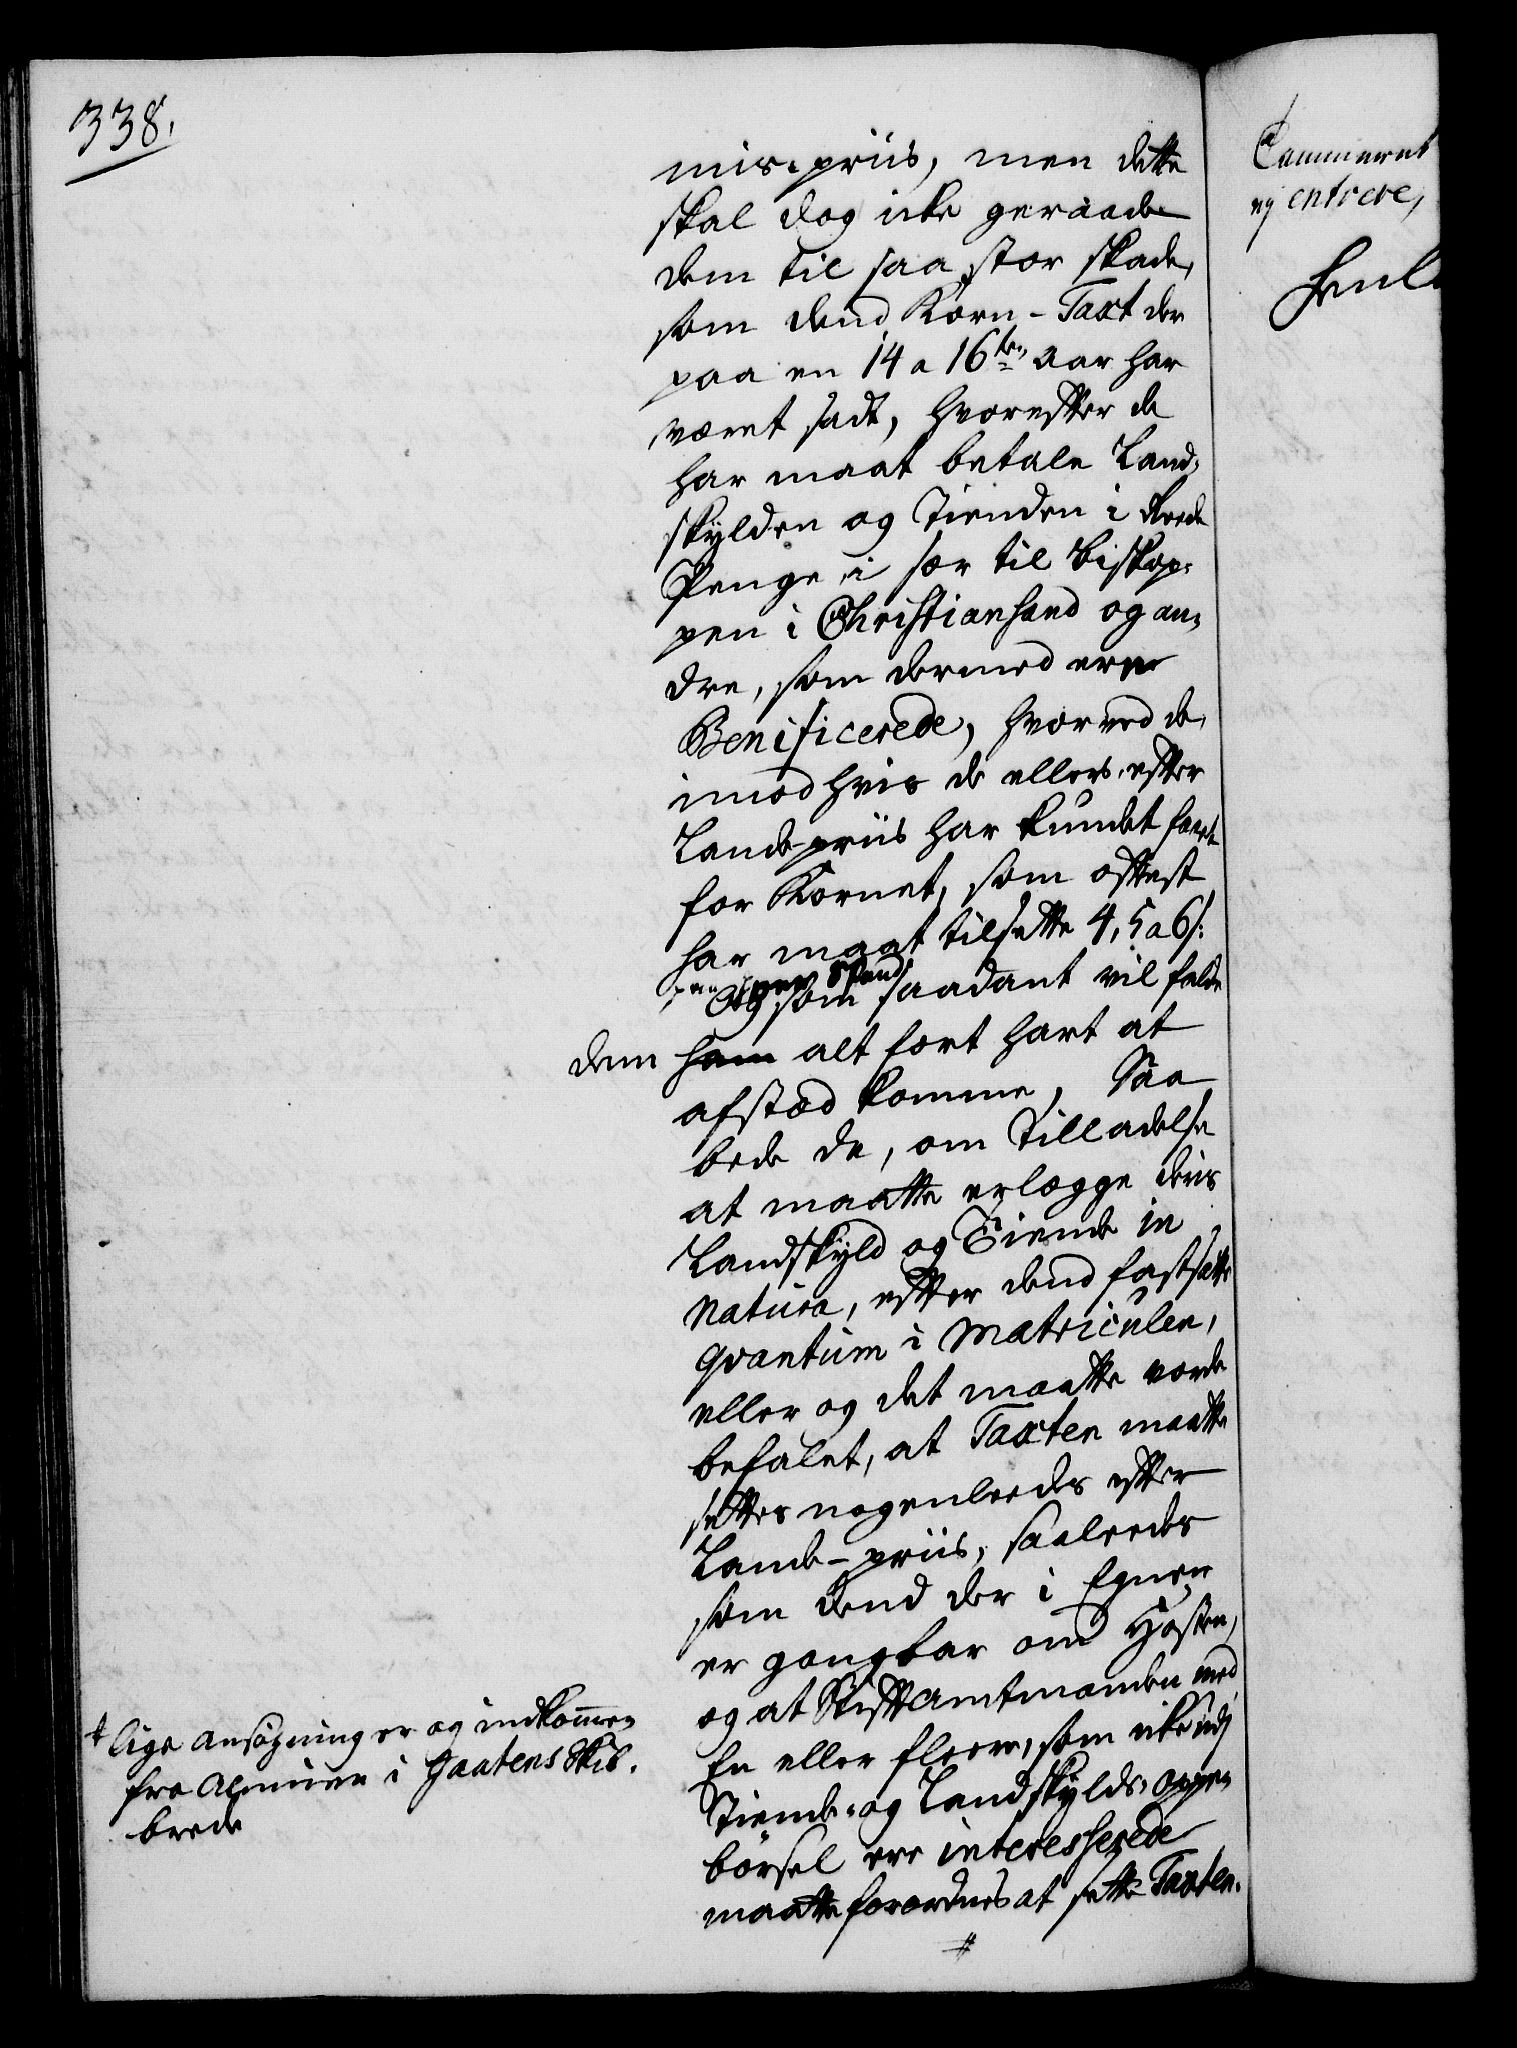 338.
mis-priis, men dette
skal dog icke geraade
dem til saa stor skade,
som dend Korn-Taxt der
paa en 14 a 16ten aar har
været sadt, hvorefter de
har maat betale Land-
skylden og Tienden i Reede
Penge, i sær til Biskop-
pen i Christiansand og an-
dre, som dermed ere
Benificerede, hvorved de,
imod hvis de ellers efter
Lands-priis har kundet faaet
for Kornet, som oftest
har maat tilsætte 4, 5 a 6 s:
paa hver Spand
Og som saadant vil falde
dem ham alt fort hart at
afstæd komme, Saa
bede de, om Tilladelse
at maatte erlegge deris
Landskyld og Tiende in
natura, efter dend fastsatte
qvantum i Matriculen,
eller og det maatte vorde
befalet, at Taxten maatte
settes nogenleedes efter
Lands-priis, saaleedes
som dend der i Egnen
er gangbar om Høsten,
og at Stiftamtmanden med
En eller fleere, som icke udj
Tiende- og Landskylds-oppe-
børsel ere interesserede
maatte forordnes at sette Taxten.
#
# lige Ansøgning er og indkommen
fra Almuen i Gaatens Skib-
brede
Cammeret
ej entrere,